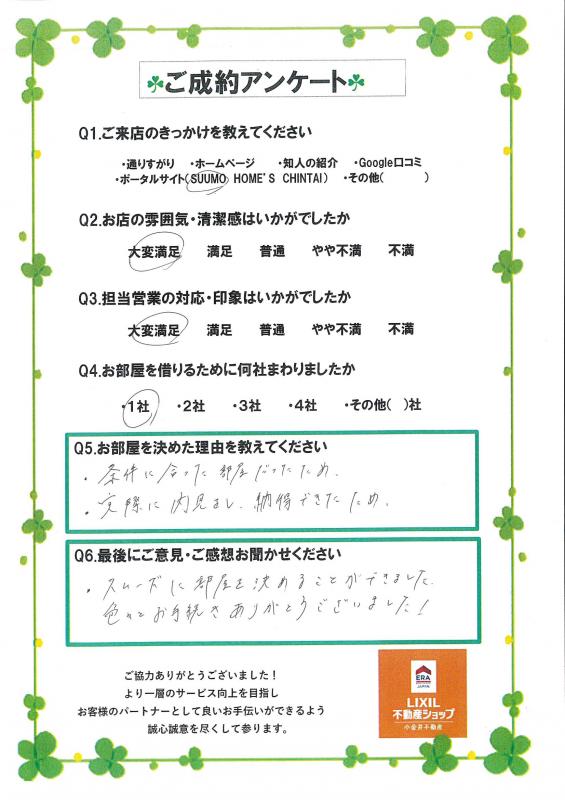 ご成約アンケート
Q1.ご来店のきっかけを教えてください
・通りすがり ・ホームページ ・知人の紹介 ・Google口コミ
・ポータルサイト(SUUMO HOME'S CHINTAI) ・その他( )
Q2.お店の雰囲気・清潔感はいかがでしたか
大変満足 満足 普通 やや不満 不満
Q3.担当営業の対応・印象はいかがでしたか
大変満足 満足 普通 やや不満 不満
Q4.お部屋を借りるために何社まわりましたか
・1社 ・2社 ・3社 ・4社 ・その他( )社
Q5.お部屋を決めた理由を教えてください
・条件に合った部屋だったため。
・実際に内見をし、納得できたため。
Q6.最後にご意見・ご感想お聞かせください
・スムーズに部屋を決めることができました。
色々とお手続きありがとうございました!
ご協力ありがとうございました!
より一層のサービス向上を目指し
お客様のパートナーとして良いお手伝いができるよう
誠心誠意を尽くして参ります。
ERA
JAPAN
LIXIL
不動産ショップ
小金井不動産